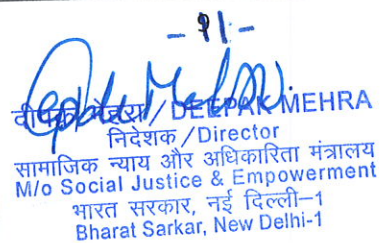 - 91 -
दीपक मेहरा / DEEPAK MEHRA
निदेशक / Director
सामाजिक न्याय और अधिकारिता मंत्रालय
M/o Social Justice & Empowerment
भारत सरकार, नई दिल्ली–1
Bharat Sarkar, New Delhi-1